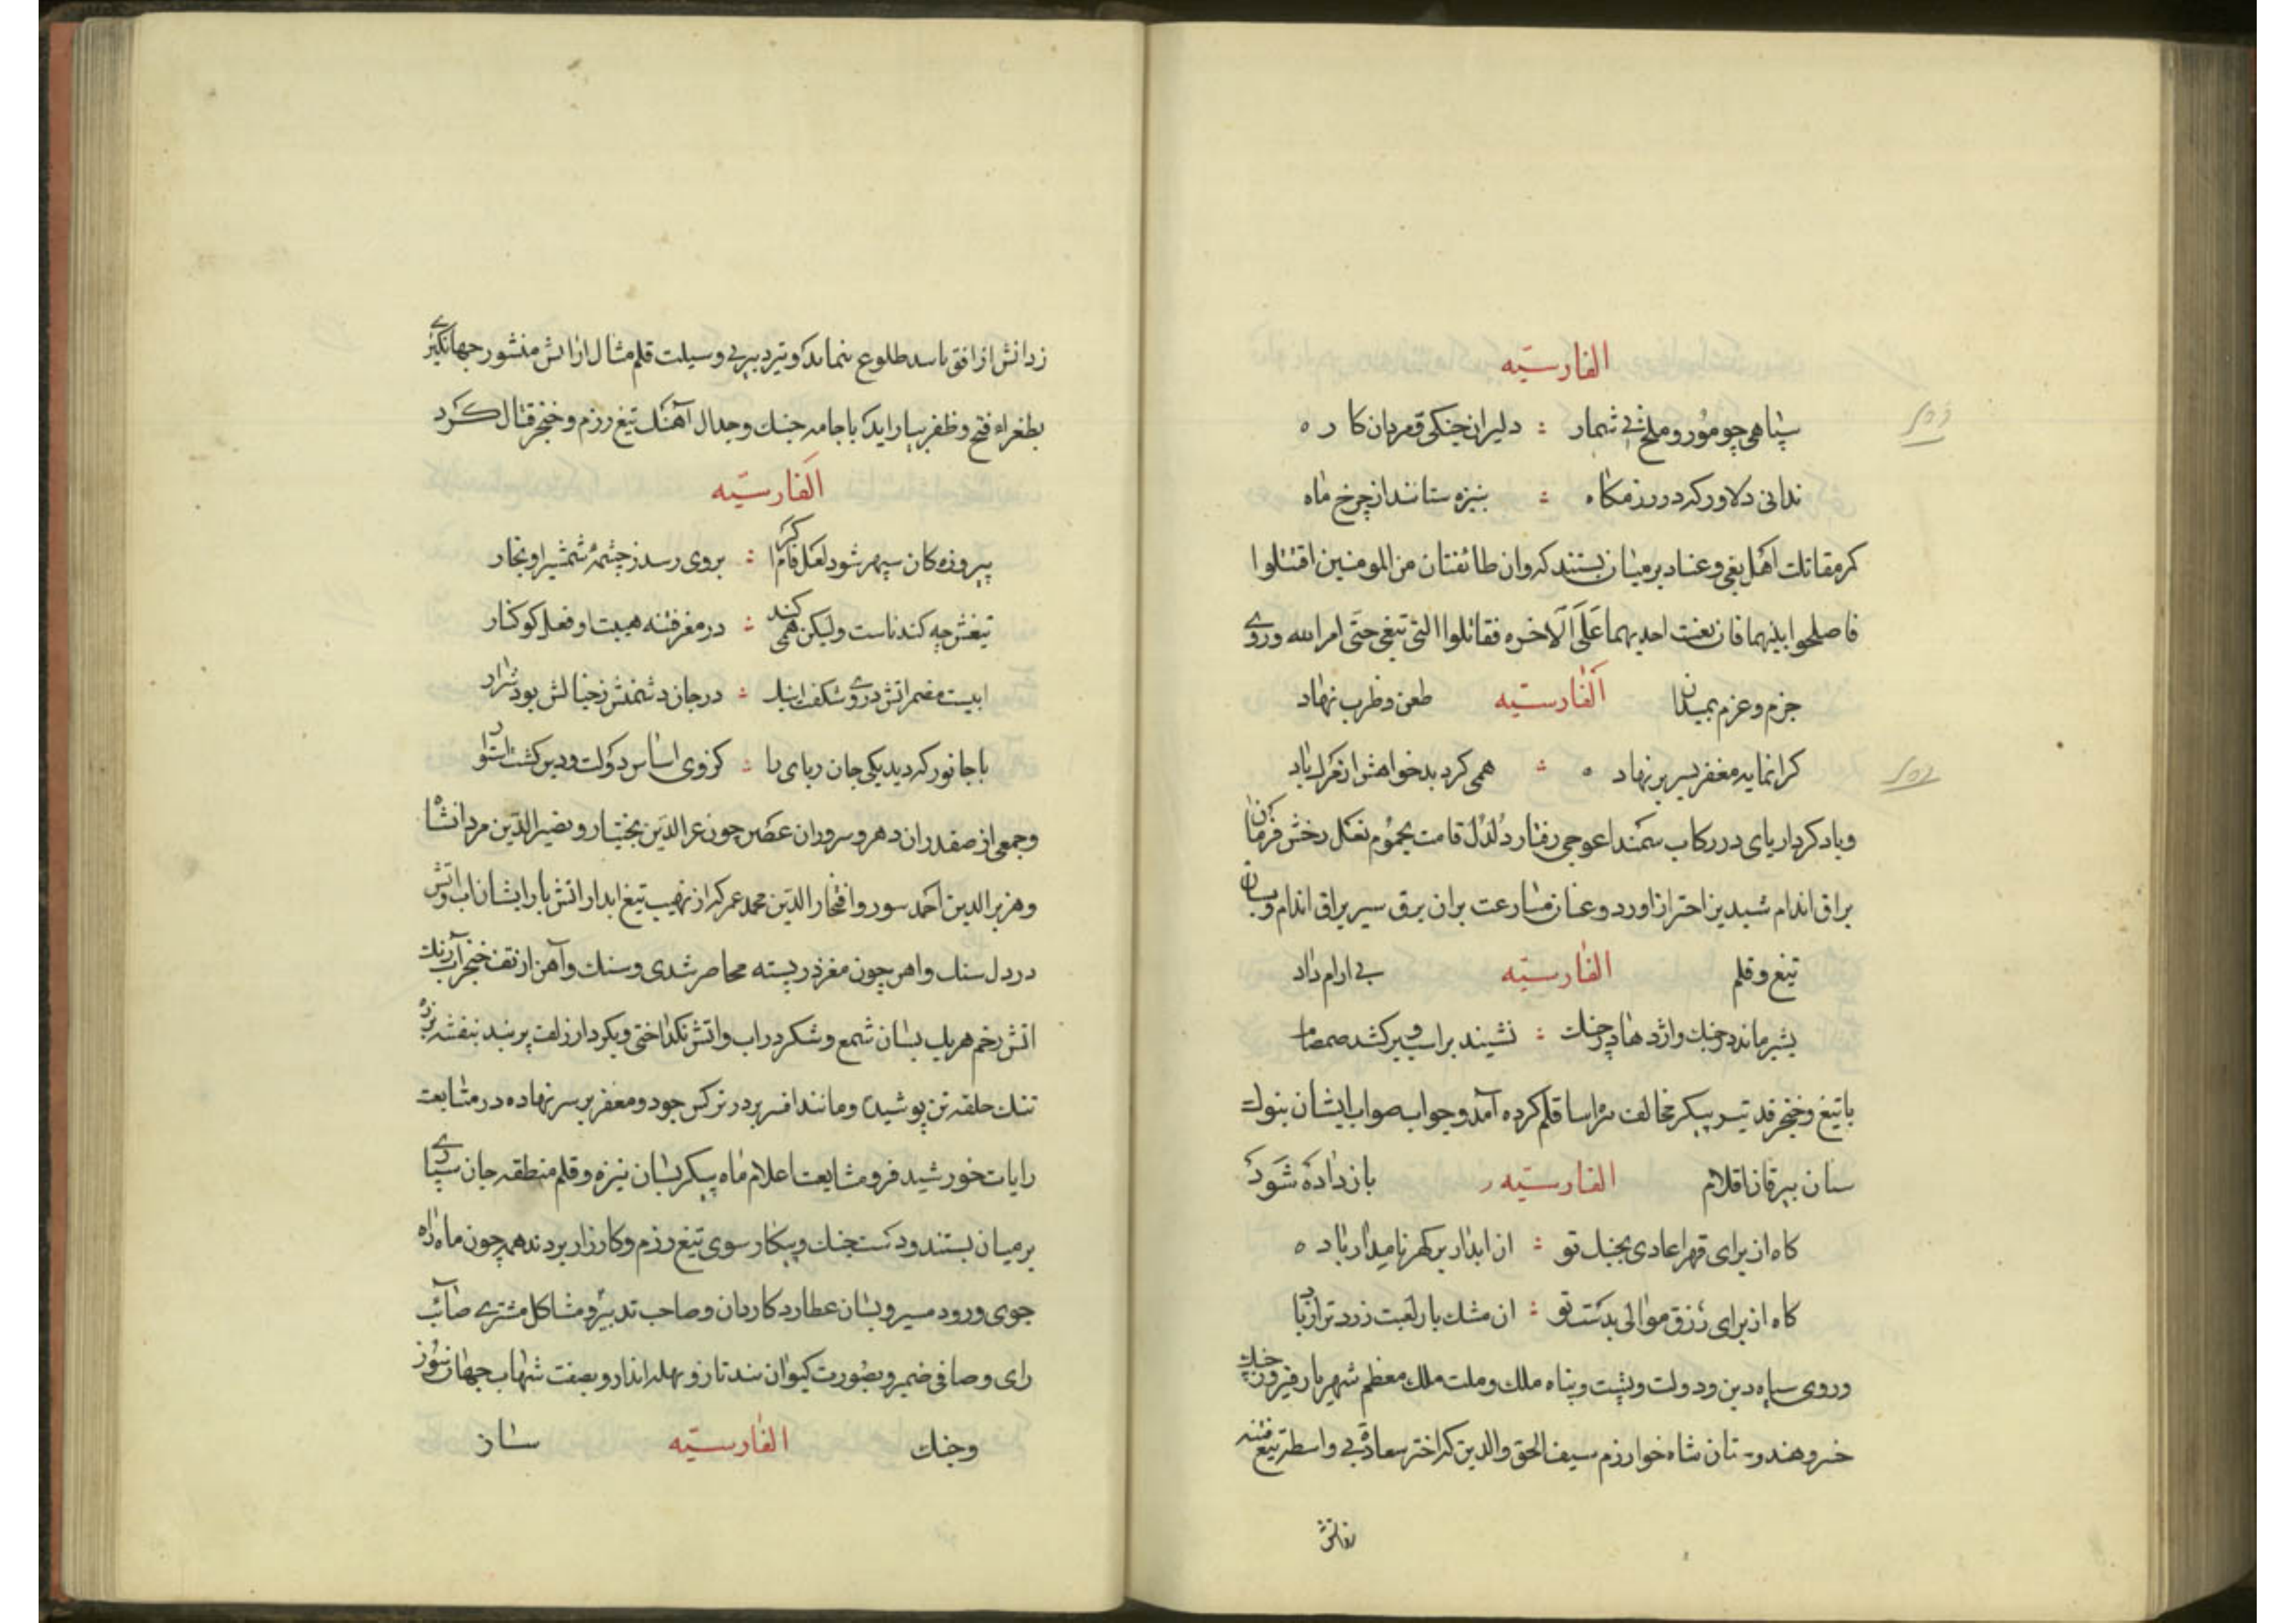 الفارسیّه
سپاهی چو مور و ملخ بی شمار : دلیران جنکی قهرمان کار ه
ندانی دلاور که در رزمکاه : بنیزه ستانند از چرخ ماه
کمر مقاتلت اهل بغی و عناد بر میان بستند که وان طائفتان من المومنین اقتتلوا
فاصلحوا بینهما فان بغت احدیهما علی الاخره فقاتلوا التی تبغی حتی امر الله و روی
جزم و عزم بمیدان الفارسیّه طعن و ظرب نهاد
کرانمایه مغفر بسر بر نهاد ه : همی کرد بدخواهش از مرک یاد
و باد کردار پای در رکاب سمند اعوجی رفتار دلدل قامت یحموم نعل رخش فرمان
براق اندام شبدیز احتراز اورد و عنان مسارعت بران برق سیر براق اندام
تیغ و قلم الفارسیّه بی ارام داد
بشیر ماند در جنک و اژدها در جنک : نشیند بر اسب و بر کشد صمصام
با تیغ و خنجر قد پیکر مخالف سراسا قلم کرده آمد و جواب صواب ایشان بنوک
سنان بیرقان اقلام الفارسیّه باز داده شود
کاه از برای قهر اعادی بجنک تو : ان ابدار پر کهر نامدار باد ه
کاه از برای رزق موالی بدست تو : ان مشک بار لعبت زرد نزار باد
و روی سپاه دین و دولت و پشت و پناه ملک و ملت ملک معظم شهریار فیروز جنک
خسرو هندوستان شاه خوارزم سیف الحق والدین که اختر سعادة بی واسطه تیغ فتنه
زدانش
زدانش از افق باسد طلوع ننماید و تیر دبیر بی وسیلت قلم مثال ارانش منشور جهانکیری
بطغراء فتح و ظفر بیاراید با جامه جنک و جدال آهنک تیغ رزم و خنجر قتال کرد
الفارسیّه
پیروزه کان سپهر شود لعل فام اکر : بروی رسد ز چشمهٔ شمشیر او بخار
تیغش چه کندناست ولیکن همی کند : در مغز فتنه هیبت او فعل کوکنار
ابیست مضمر اتش در وی شکفت اینک : در جان دشمنش ز خیالش بود شرار
با جانور که دید یکی جان ربای را : کز وی اساس دولت و دین کشت استوار
و جمعی از صفدران دهر و سروران عصر چون عز الدین بختیار و نصیر الدین مردانشاه
و هزبر الدین احمد سور و افتخار الدین محمد عمر که از نهیب تیغ ابدار اتش بار ایشان اب و اتش
در دل سنک و اهن چون مغز در پسته محاصر شدی و سنک و آهن از تف خنجر آب رنک
اتش زخم هر یک بسان شمع و شکر در اب و اتش بکداختی و بکردار زلف پر بند بنفشه زره
تنک حلقه تن پوشید و مانند افسر بر در نرکس جود و مغفر بر سر نهاده در متابعت
رایات خورشید فر و مشایعت اعلام ماه پیکر بسان نیزه و قلم منطقه جان سپاری
بر میان بستند و دست جنک و پیکار سوی تیغ رزم و کارزار بردند همه چون ماه راه
جوی و رود مسیر و بسان عطارد کاردان و صاحب تدبیر و مشاکل مشتری صائب
رای و صافی ضمیر و بصورت کیوان و بصفت شهاب جهان سوز
و جنک الفارسیّه ساز